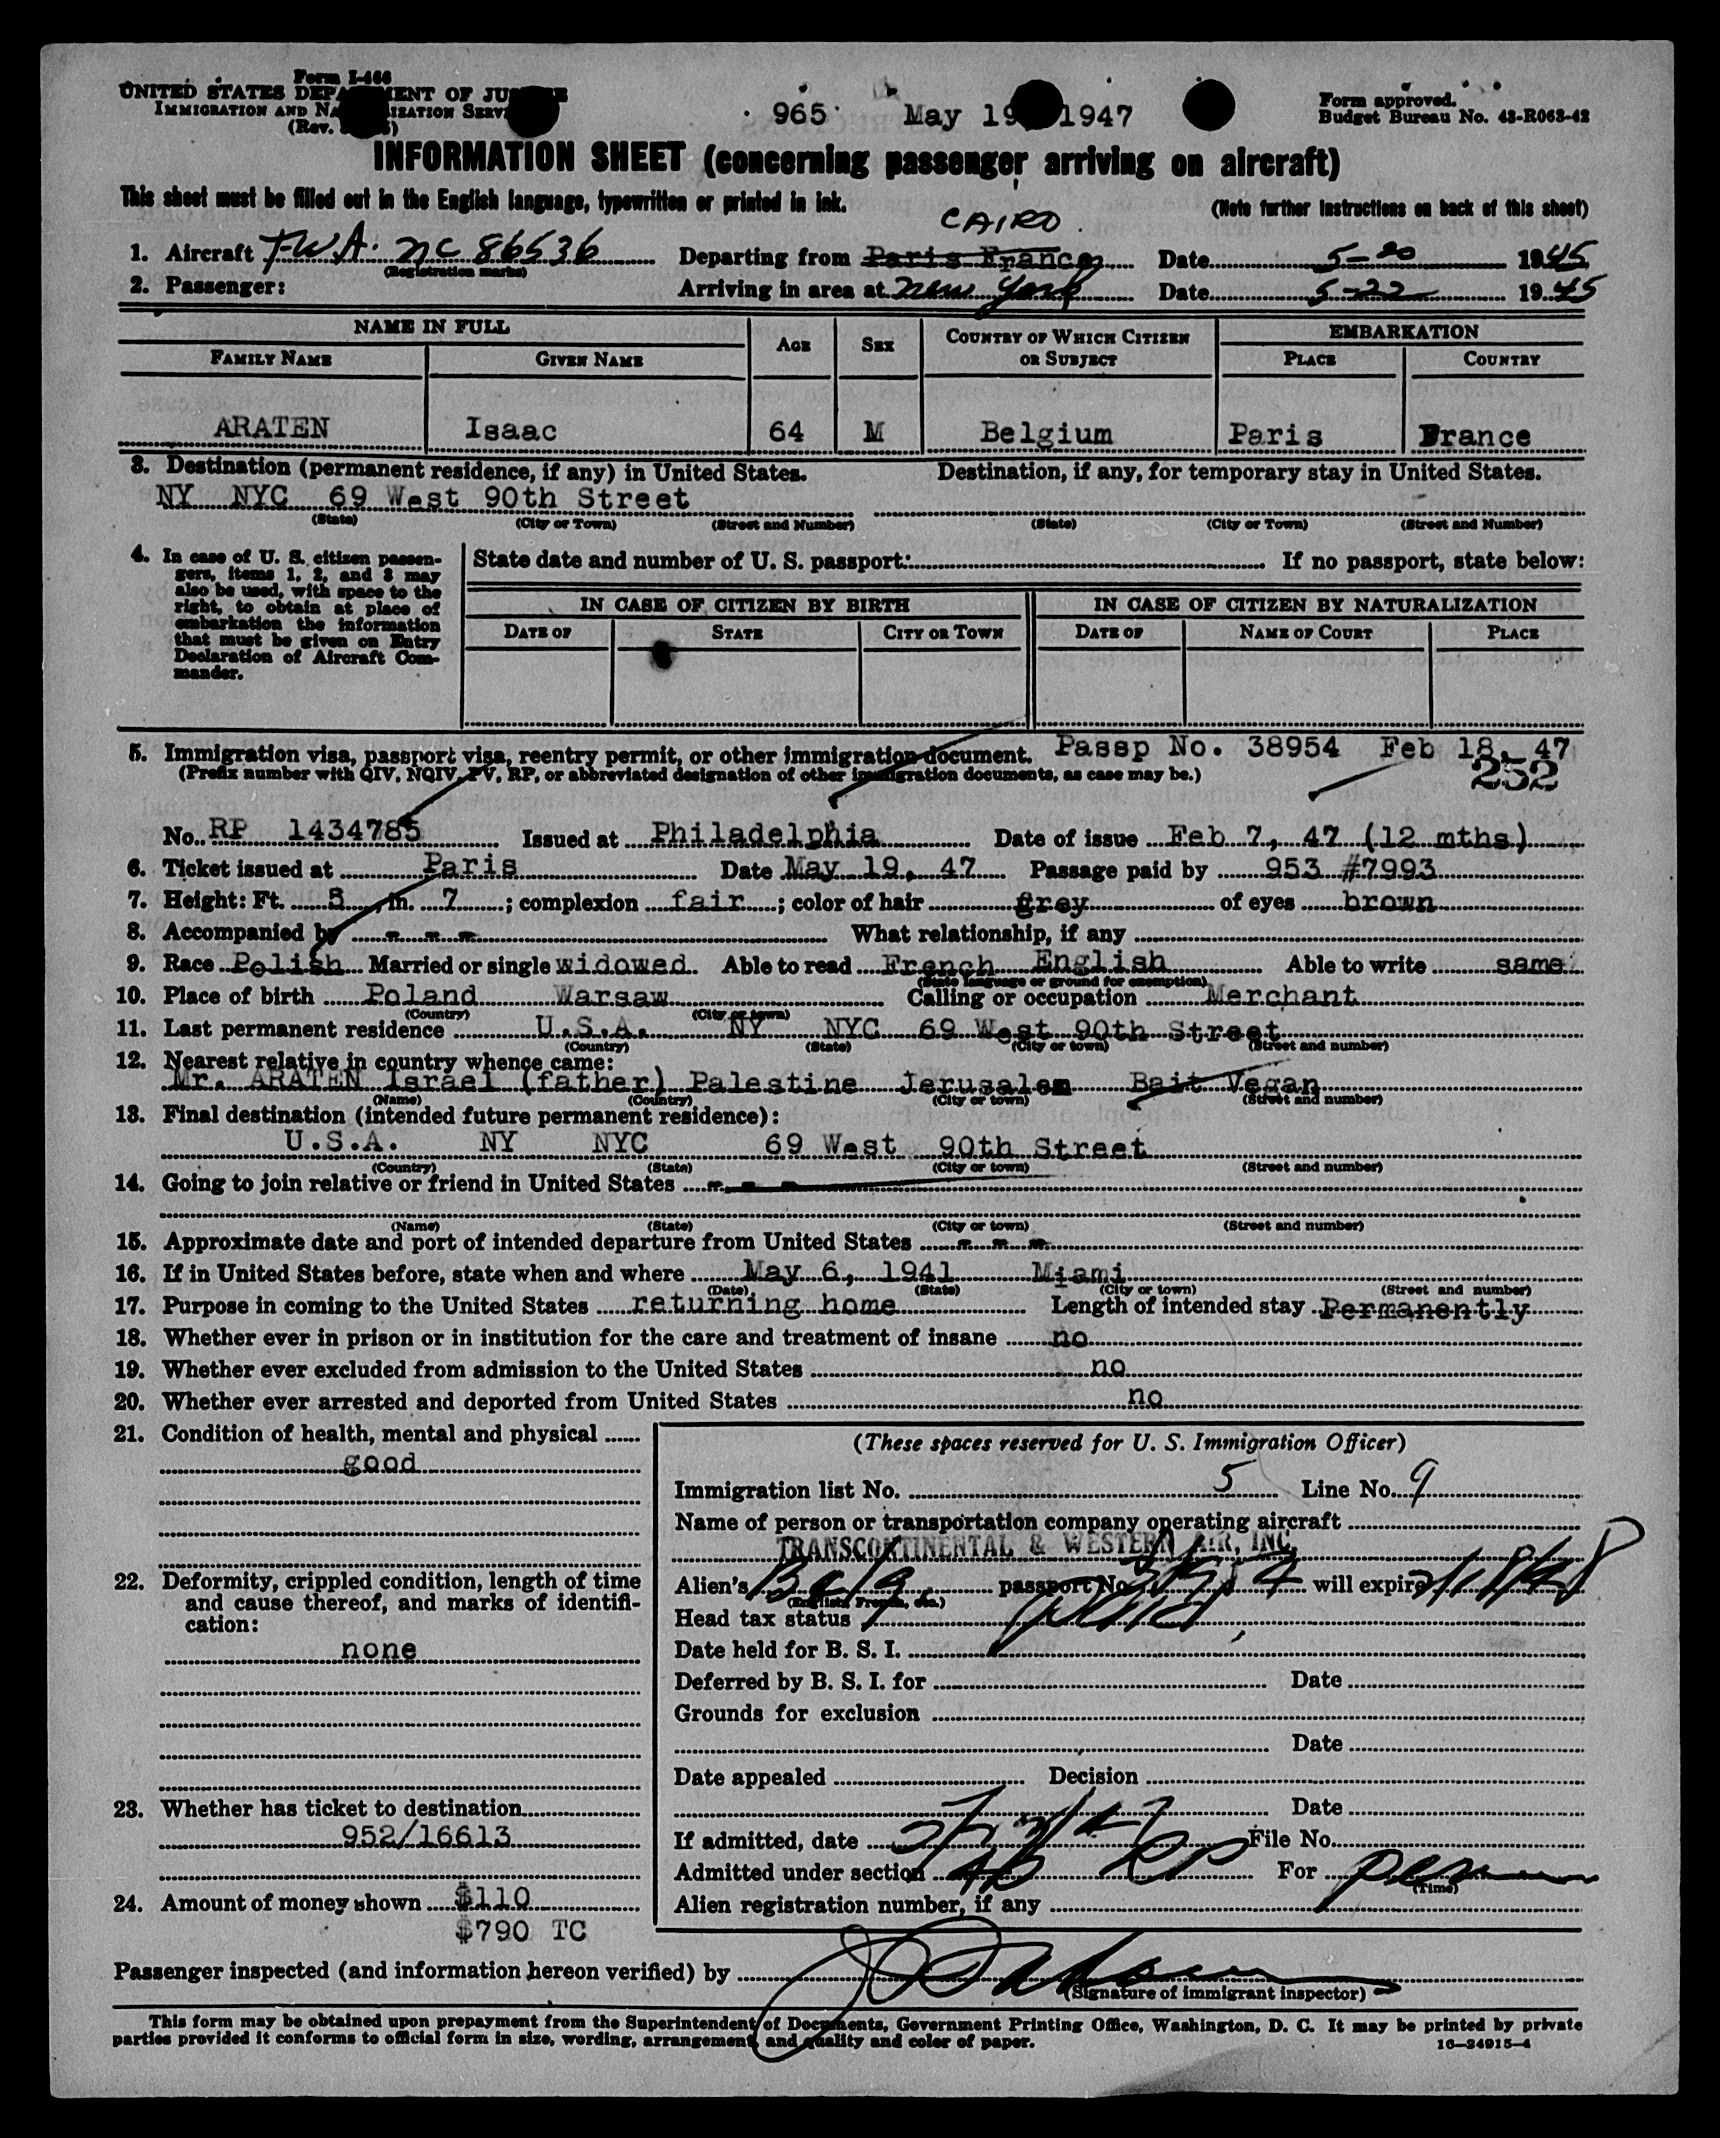 Form I-466
UNITED STATES DEPARTMENT OF JUSTICE
IMMIGRATION AND NATURALIZATION SERVICE
(Rev.
965 May 19, 1947
Form approved.
Budget Bureau No. 43-R063-42
INFORMATION SHEET (concerning passenger arriving on aircraft)
This sheet must be filled out in the English language, typewritten or printed in ink.
(Note further instructions on back of this sheet)
CAIRO
1. Aircraft T.W.A. NC 86536 Departing from Paris France Date 5-20 1945
(Registration marks)
2. Passenger: Arriving in area at New York Date 5-22 1945
NAME IN FULL AGE SEX COUNTRY OF WHICH CITIZEN OR SUBJECT EMBARKATION
FAMILY NAME GIVEN NAME PLACE COUNTRY
ARATEN Isaac 64 M Belgium Paris France
3. Destination (permanent residence, if any) in United States. Destination, if any, for temporary stay in United States.
NY NYC 69 West 90th Street
(State) (City or Town) (Street and Number) (State) (City or Town) (Street and Number)
4. In case of U. S. citizen passen-
gers, items 1, 2, and 3 may
also be used, with space to the
right, to obtain at place of
embarkation the information
that must be given on Entry
Declaration of Aircraft Com-
mander.
State date and number of U. S. passport: If no passport, state below:
IN CASE OF CITIZEN BY BIRTH IN CASE OF CITIZEN BY NATURALIZATION
DATE OF STATE CITY OR TOWN DATE OF NAME OF COURT PLACE
5. Immigration visa, passport visa, reentry permit, or other immigration document. Passp No. 38954 Feb 18, 47
(Prefix number with QIV, NQIV, PV, RP, or abbreviated designation of other immigration documents, as case may be.) 252
No. RP 1434785 Issued at Philadelphia Date of issue Feb 7, 47 (12 mths)
6. Ticket issued at Paris Date May 19, 47 Passage paid by 953 #7993
7. Height: Ft. 5, in. 7; complexion fair; color of hair grey of eyes brown
8. Accompanied by - - - What relationship, if any
9. Race Polish Married or single widowed Able to read French English Able to write same
(State language or ground for exemption)
10. Place of birth Poland Warsaw Calling or occupation Merchant
(Country) (City or town)
11. Last permanent residence U.S.A. NY NYC 69 West 90th Street
(Country) (State) (City or town) (Street and number)
12. Nearest relative in country whence came:
Mr. ARATEN Israel (father) Palestine Jerusalem Bait Vegan
(Name) (Country) (City or town) (Street and number)
13. Final destination (intended future permanent residence):
U.S.A. NY NYC 69 West 90th Street
(Country) (State) (City or town) (Street and number)
14. Going to join relative or friend in United States - - -
(Name) (State) (City or town) (Street and number)
15. Approximate date and port of intended departure from United States - - -
16. If in United States before, state when and where May 6, 1941 Miami
(Date) (State) (City or town) (Street and number)
17. Purpose in coming to the United States returning home Length of intended stay Permanently
18. Whether ever in prison or in institution for the care and treatment of insane no
19. Whether ever excluded from admission to the United States no
20. Whether ever arrested and deported from United States no
21. Condition of health, mental and physical
good
22. Deformity, crippled condition, length of time
and cause thereof, and marks of identifi-
cation:
none
23. Whether has ticket to destination
952/16613
24. Amount of money shown $110
$790 TC
(These spaces reserved for U. S. Immigration Officer)
Immigration list No. 5 Line No. 9
Name of person or transportation company operating aircraft
TRANSCONTINENTAL & WESTERN AIR, INC.
Alien's Belg passport No. will expire 2/18/48
(English, French, etc.)
Head tax status paid
Date held for B. S. I.
Deferred by B. S. I. for Date
Grounds for exclusion
Date
Date appealed Decision
Date
If admitted, date File No.
Admitted under section 4b RP For perm
(Time)
Alien registration number, if any
Passenger inspected (and information hereon verified) by
(Signature of immigrant inspector)
This form may be obtained upon prepayment from the Superintendent of Documents, Government Printing Office, Washington, D. C. It may be printed by private
parties provided it conforms to official form in size, wording, arrangement, and quality and color of paper.
16—34915-4